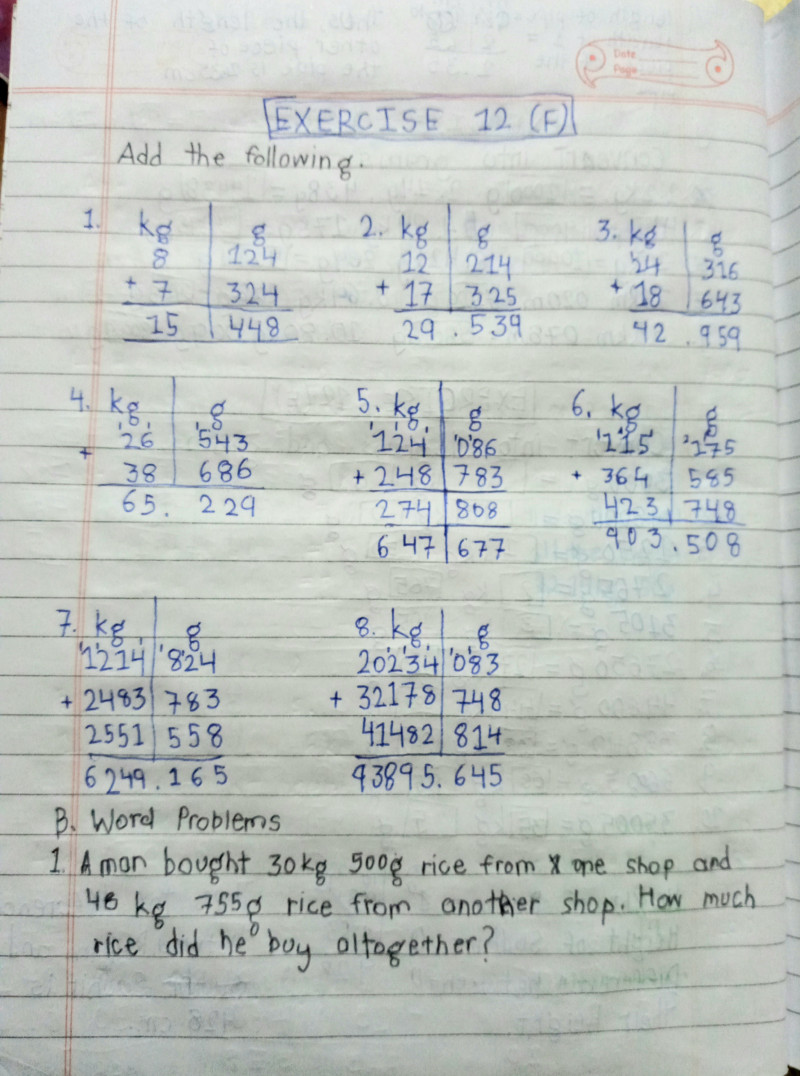 Date
Page
EXERCISE 12 (F)
Add the following.
1. kg | g
8 | 124
+ 7 | 324
15 | 448
2. kg | g
12 | 214
+ 17 | 325
29 . 539
3. kg | g
24 | 316
+ 18 | 643
42 . 959
4. kg | g
26 | 543
+ 38 | 686
65. 229
5. kg | g
124 | 086
+ 248 | 783
274 | 808
647 | 677
6. kg | g
115 | 175
+ 364 | 585
423 | 748
903.508
7. kg | g
1214 | 824
+ 2483 | 783
2551 | 558
6249.165
8. kg | g
20234 | 083
+ 32178 | 748
41482 | 814
93895.645
B. Word Problems
1. A man bought 30kg 500g rice from one shop and
48 kg 755g rice from another shop. How much
rice did he buy altogether?